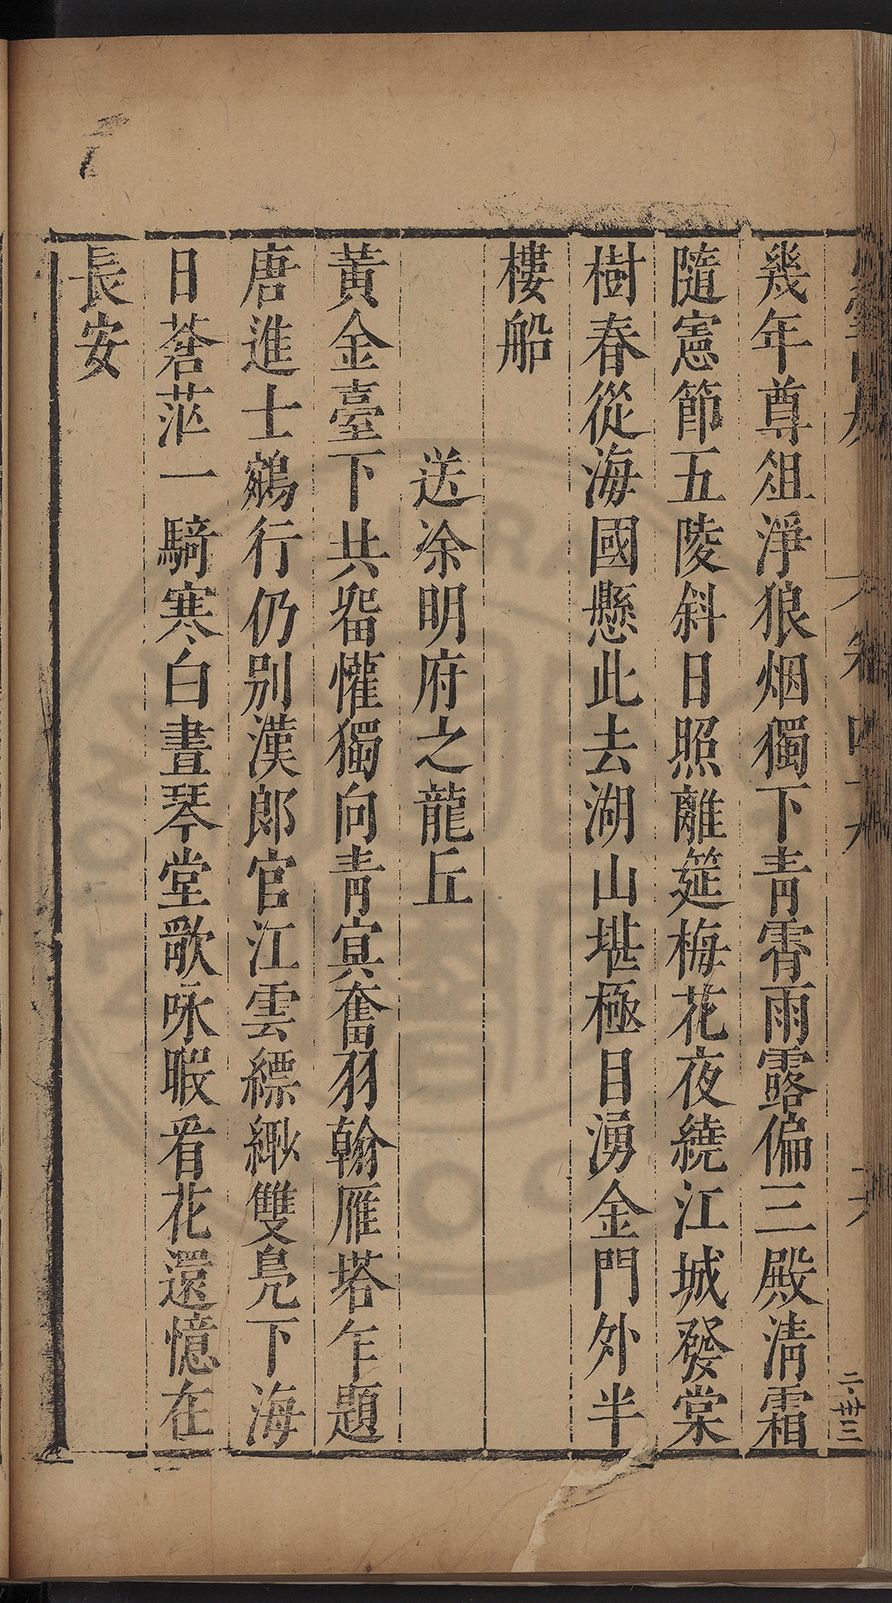 幾年尊俎淨狼烟獨下青霄雨露偏三殿清霜
隨憲節五陵斜日照離筵梅花夜繞江城發棠
樹春從海國懸此去湖山堪極目湧金門外半
樓船
送凃明府之龍丘
黃金臺下共畱懽獨向青㝠奮羽翰雁塔乍題
唐進士鵷行仍别漢郎官江雲縹緲雙鳧下海
日蒼茫一騎寒白晝琴堂歌咏暇看花還憶在
長安